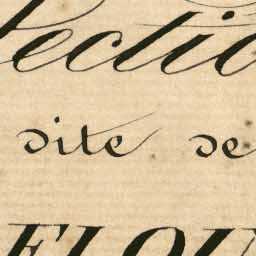 lectio
dite de
FLOU